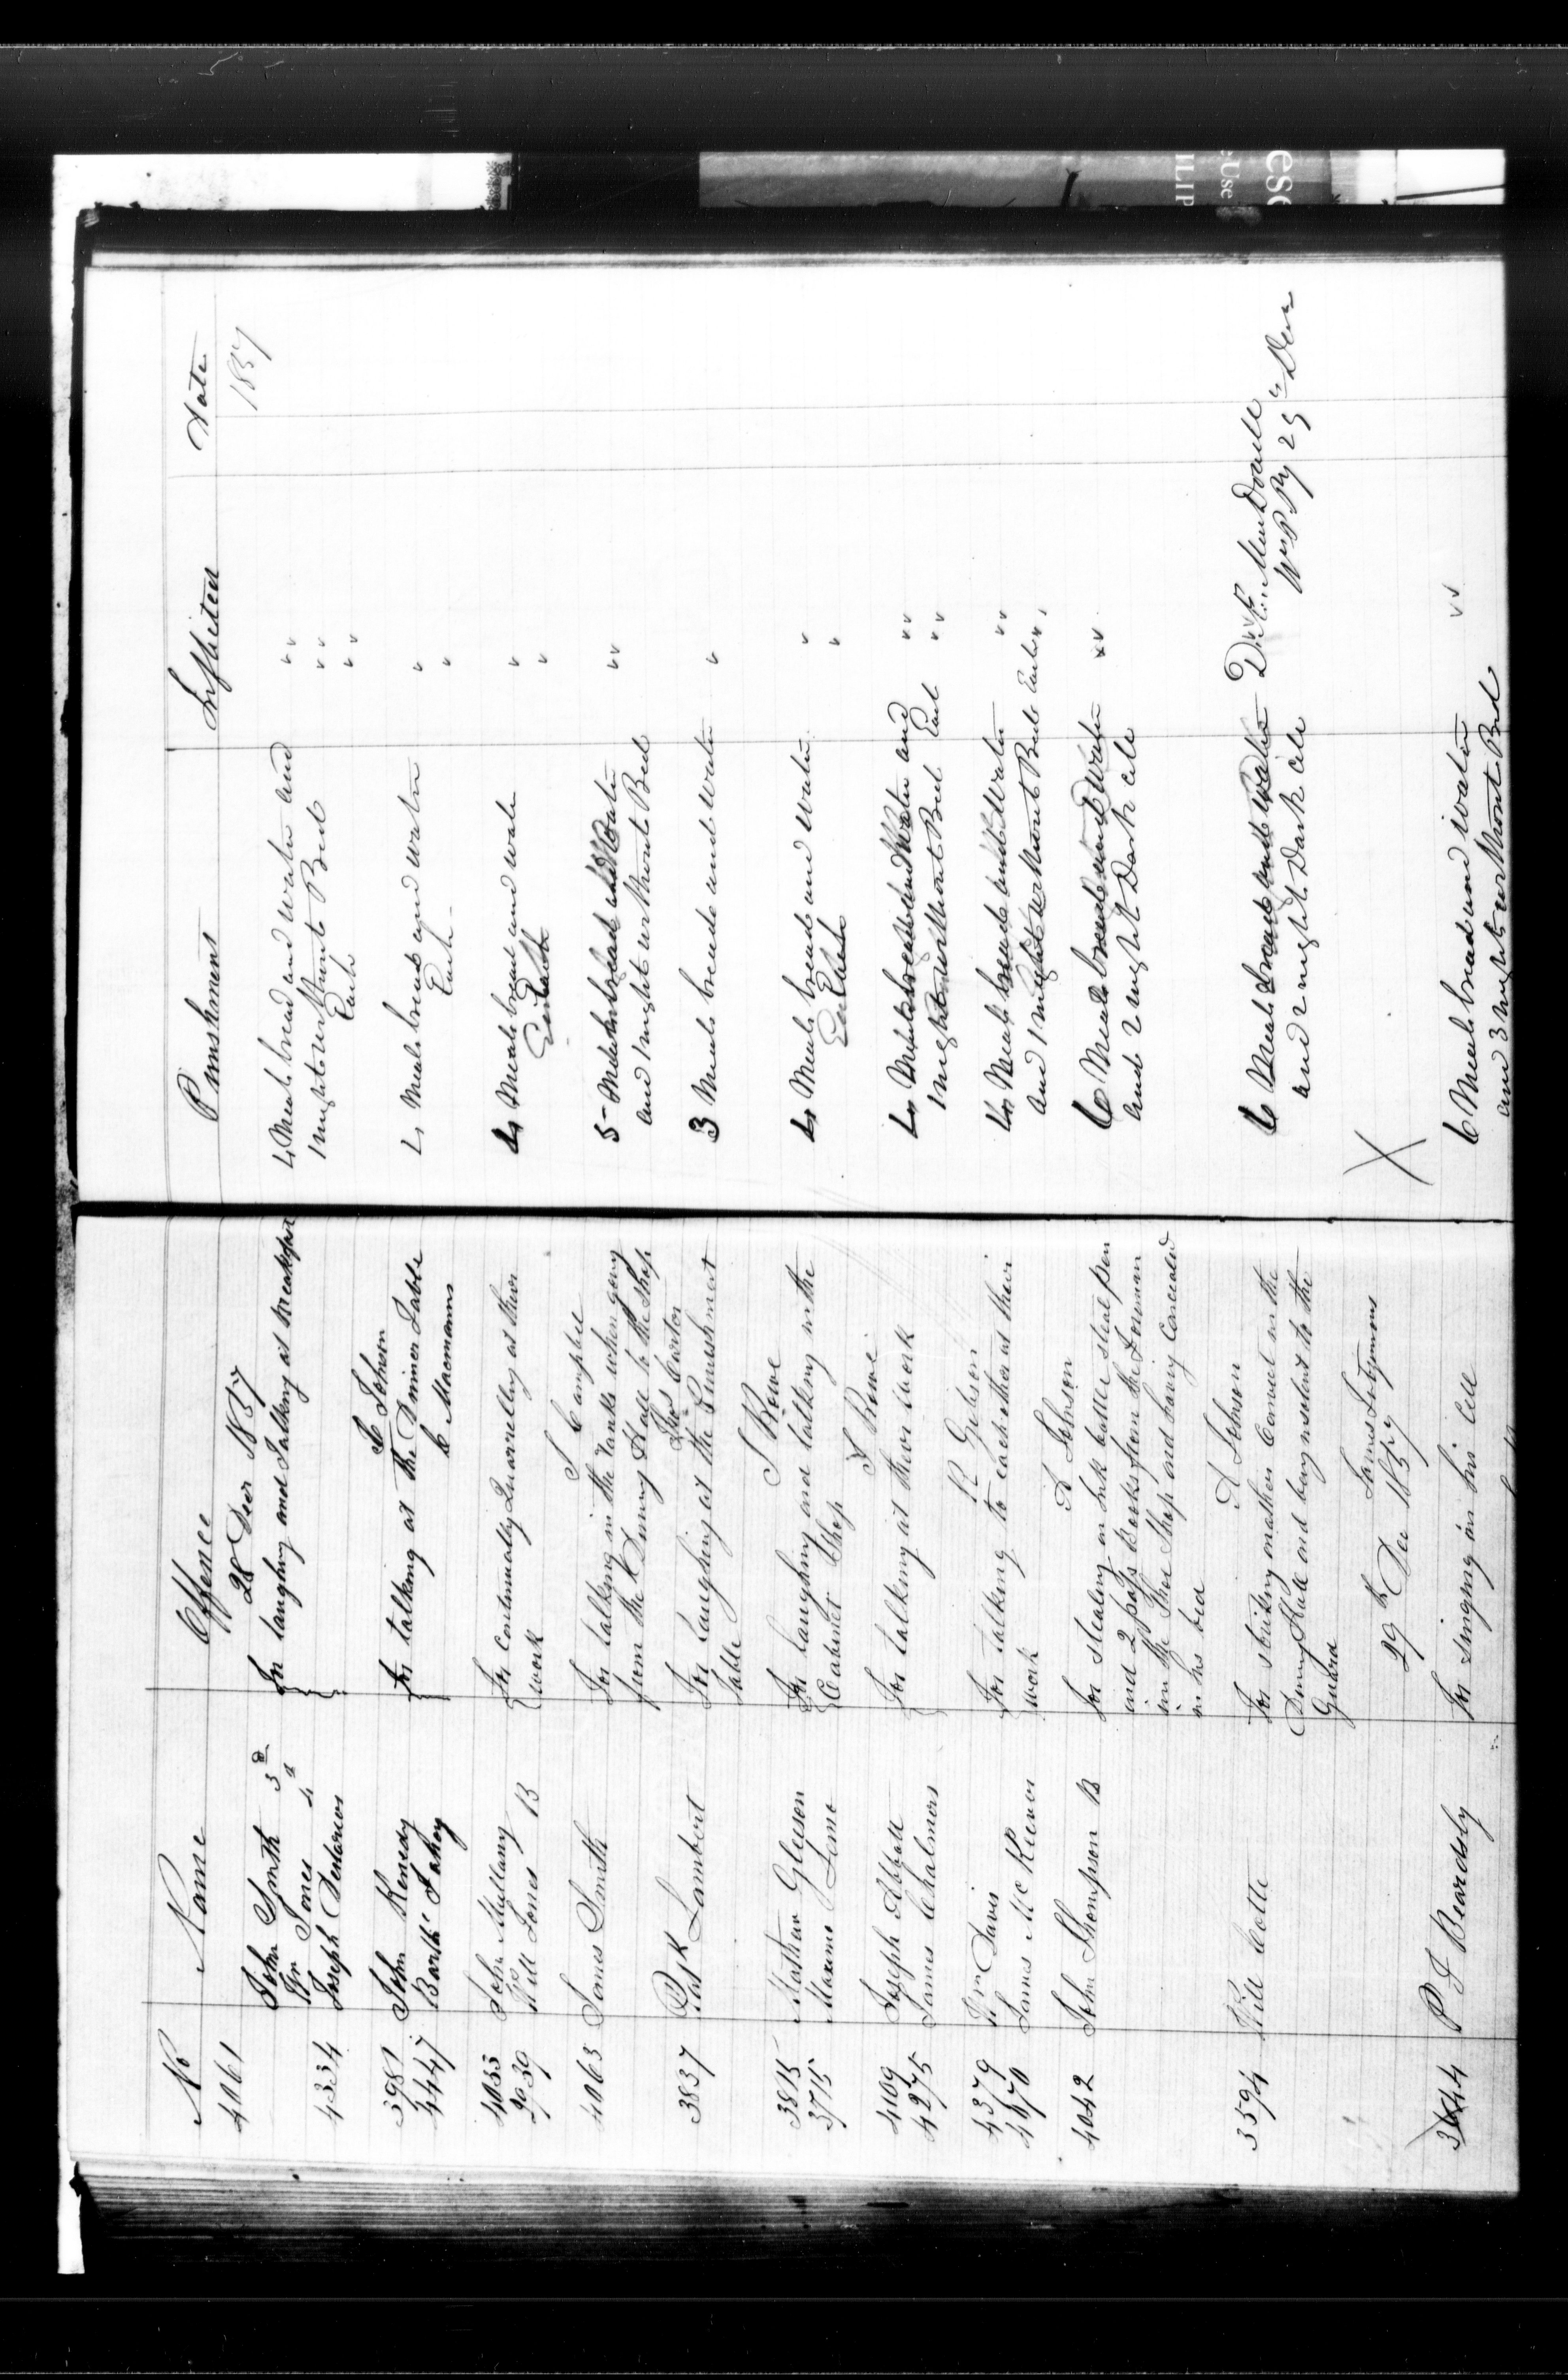 No Name Offence Punishment Inflicted Date
28 Decr 1857 1857
4061 John Smith 3d For laughing and Talking at Breakfast 4 Meals bread and water and
Wm Jones 4 1 night without Bed
4334 Joseph Each
C Johnson
3981 John Kenedy For talking at the Dinner Table 4 Meals bread and water
4447 Barth Fahey C Macmanns Each
4033 John Mullany For Continually Quarrelling at their 4 Meals bread and water
3939 Will Jones B work Each
T Campbel
4063 James Smith For talking in the ranks when going 5 Meals bread and Water
from the Dining Hall to the Shop and 1 night without Bed
Thos Carter
3837 Patk Lambert For Laughing at the Punishment 3 Meals bread and water
Table
T Rowe
3815 Mathew Gleeson For laughing and talking in the 4 Meals bread and Water
3715 Maxime Cabinet Shop Each
T Rowe
4109 Joseph Abbott For talking at their work 4 Meals bread and Water and
4275 James Chalmers 1 night without Bed Each
R Gibson
4379 Wm Davis For talking to each other at their 4 Meals bread and Water
4670 James McKeever work and 1 night without Bed Each
A Johnson
4042 John Thompson B For stealing an Ink bottle steal pen 6 Meals bread and Water
and 2 pass Books from the Foreman and 2 night Dark Cell
in the Shoe Shop and having Concealed
in his bed
A Johnson
3594 Will Cotte For striking another Convict in the 6 Meals bread and Water
Dining Hall and being insolent to the and 2 night Dark Cell
Guard
James
29th Dec 1857
3644 P J Beardsly For singing in his Cell 6 Meals bread and water
and 3 nights without Bed